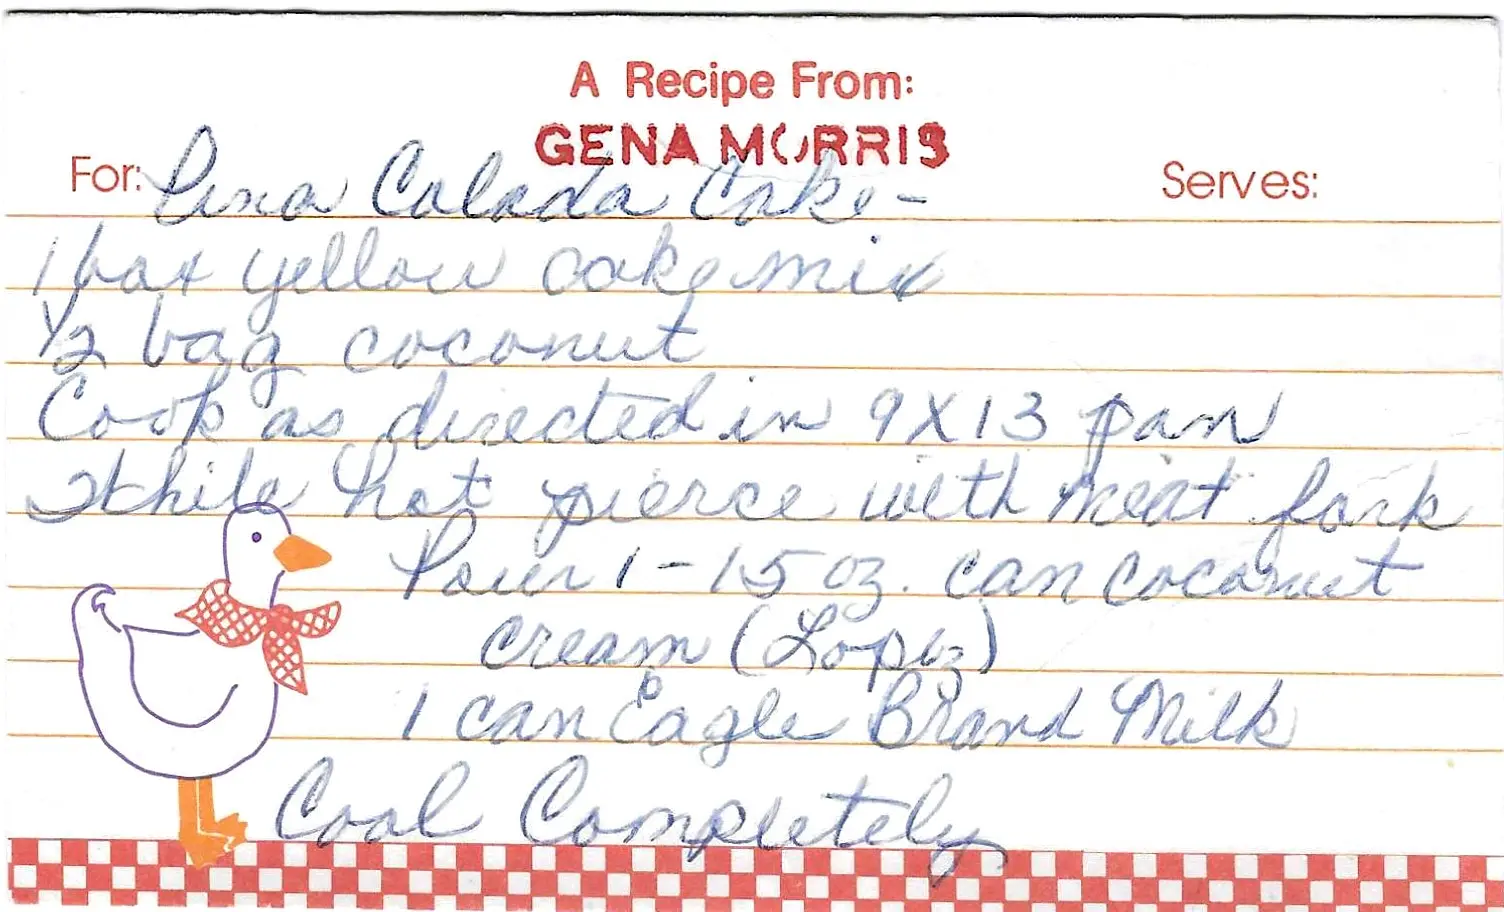 A Recipe From:
GENA MORRIS
For: Pina Colada Cake - Serves:
1 box yellow cake mix
1/2 bag coconut
Cook as directed in 9X13 pan
While hot pierce with meat fork
Pour 1-15 oz. can coconut
cream (Lopez)
1 can Eagle Brand Milk
Cool Completely